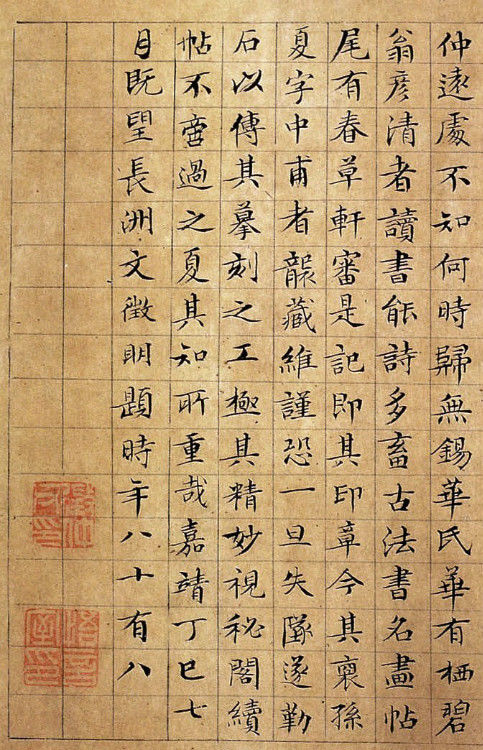 仲遠處不知何時歸無錫華氏華有栖碧
翁彥清者讀書能詩多畜古法書名畫帖
尾有春草軒審是記即其印章今其裔孫
夏字中甫者襲藏維謹恐一旦失墜遂勒
石以傳其摹刻之工極其精妙視秘閣續
帖不啻過之夏其知所重哉嘉靖丁巳七
月既望長洲文徵明題時年八十有八